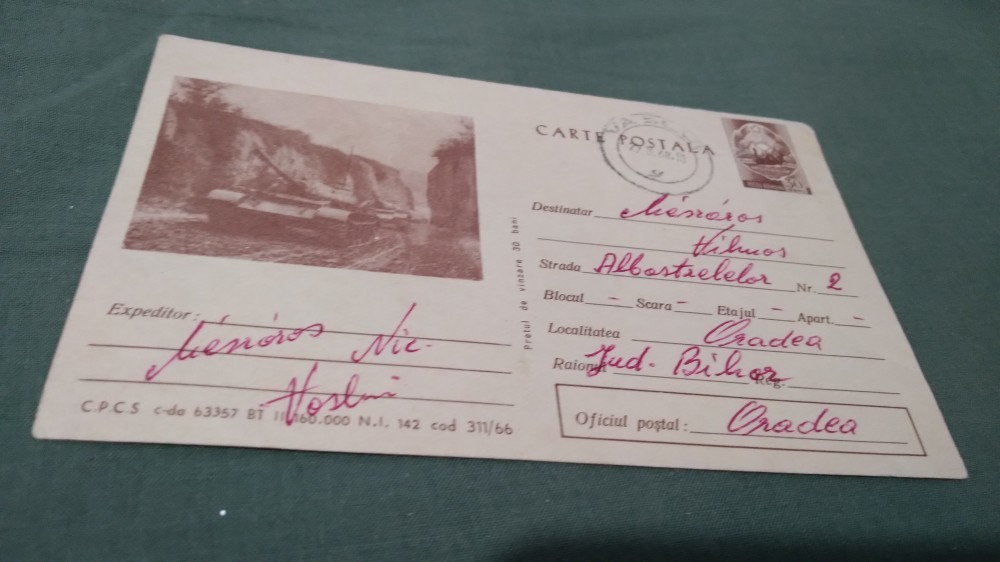 CARTE POSTALA
Destinatar Mészáros
Vilmos
Strada Albastrelelor Nr. 2
Blocul - Scara - Etajul - Apart. -
Localitatea Oradea
Raionul Jud. Bihor Reg.
Oficiul poștal: Oradea
Prețul de vînzare 30 bani
Expeditor:
Mészáros Nic.
C.P.C.S c-da 63357 BT 160.000 N.I. 142 cod 311/66